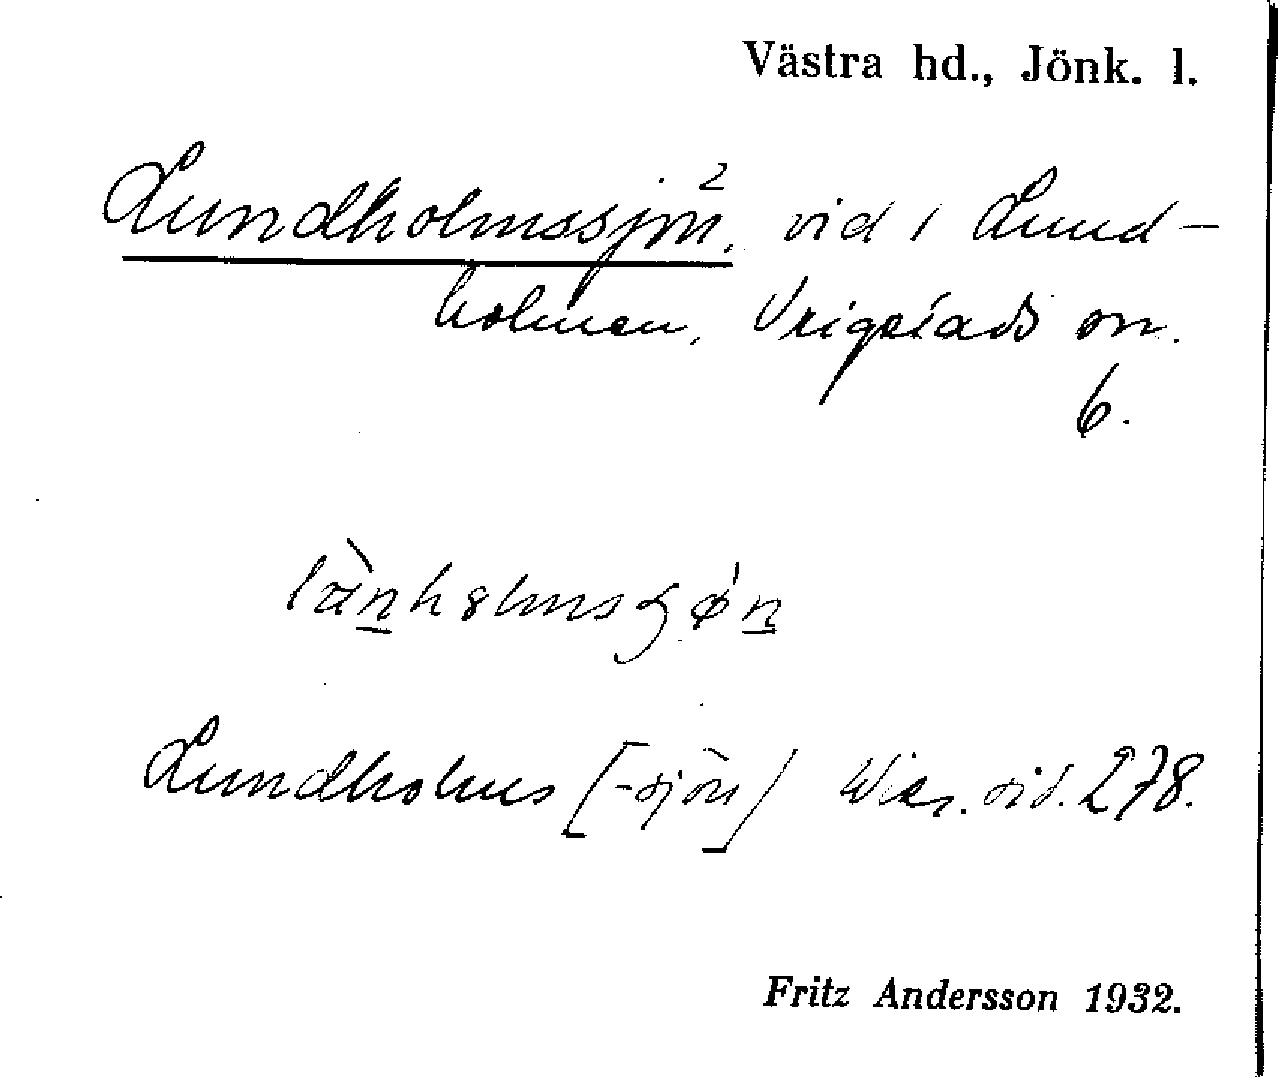 Västra hd., Jönk. l.
Lundholmssjön 2, vid 1 Lund-
holmen, Vrigstads sn.
6.
Lundholms [-sjön] Wies. sid. 278.
Fritz Andersson 1932.